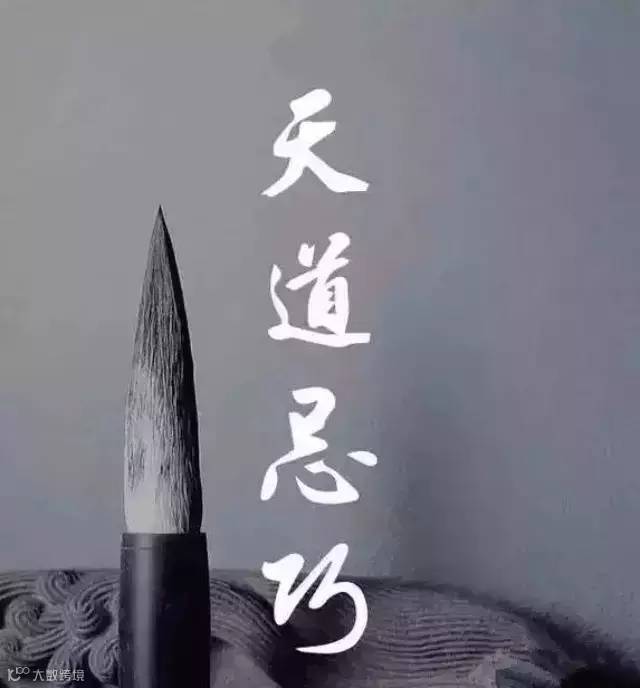 天道忌巧
大数跨境